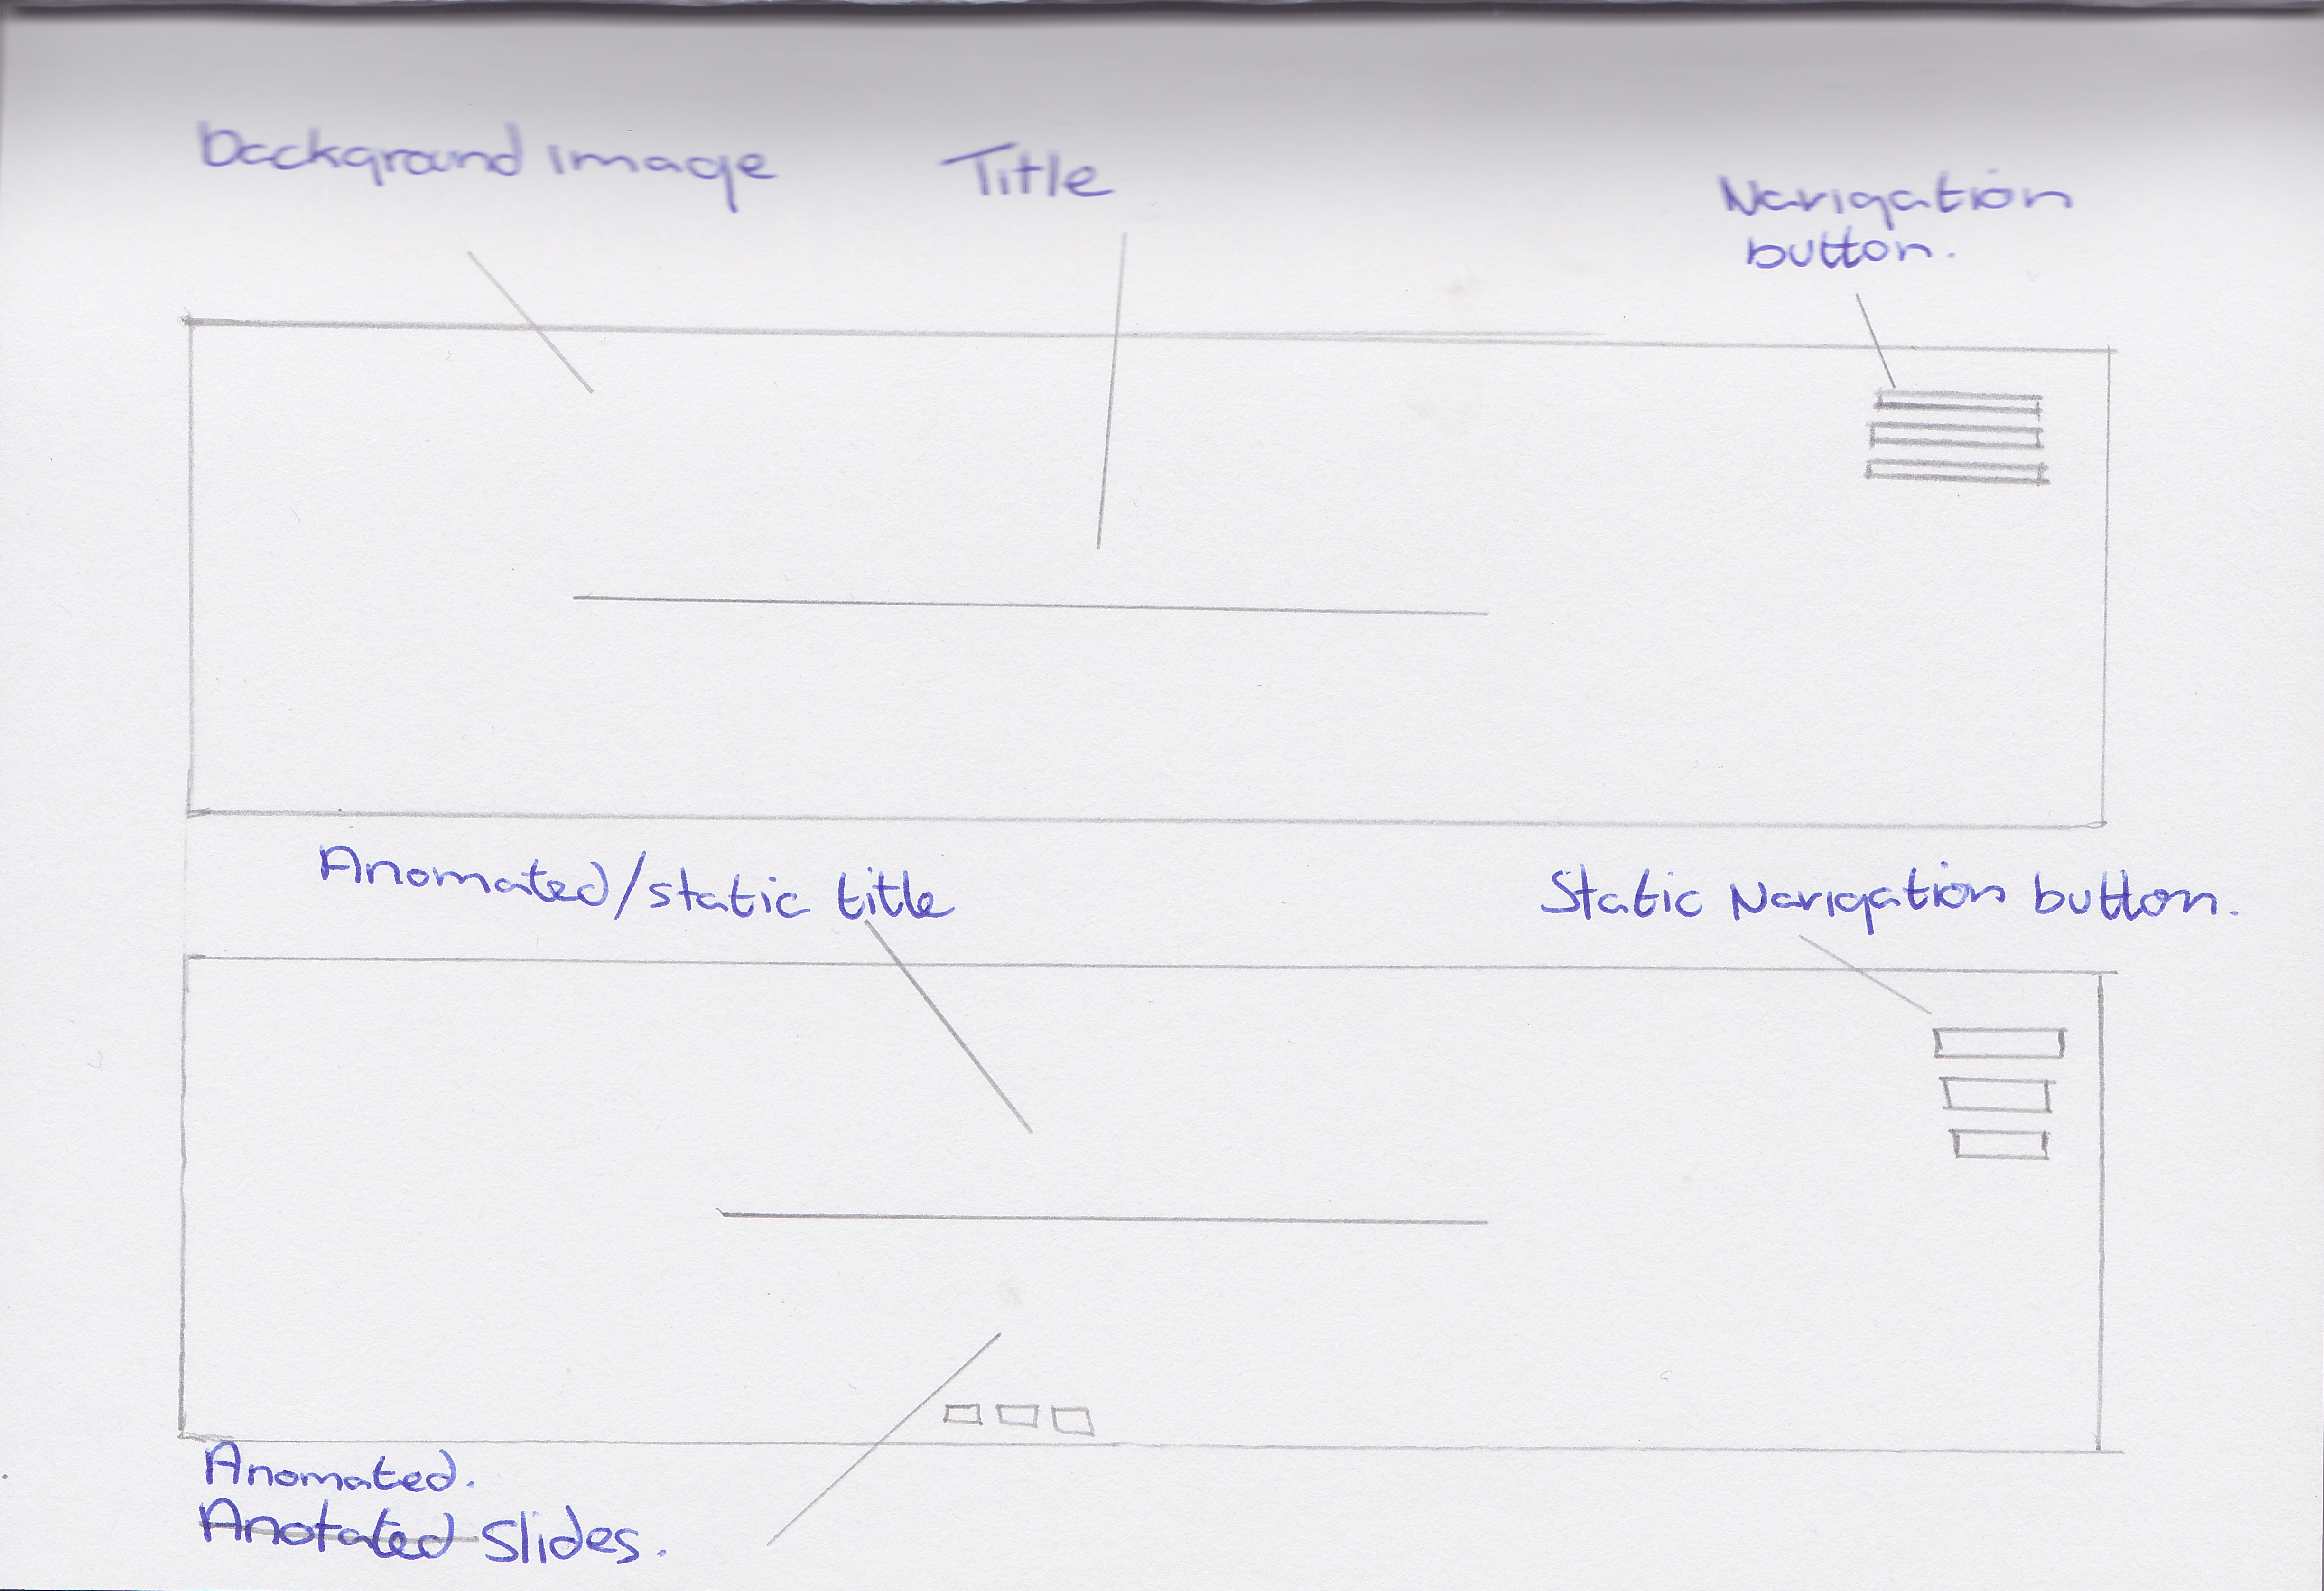 Background image
Title
Navigation
button.
Anomated/static title
Static Navigation button.
Anomated.
Anotated Slides.